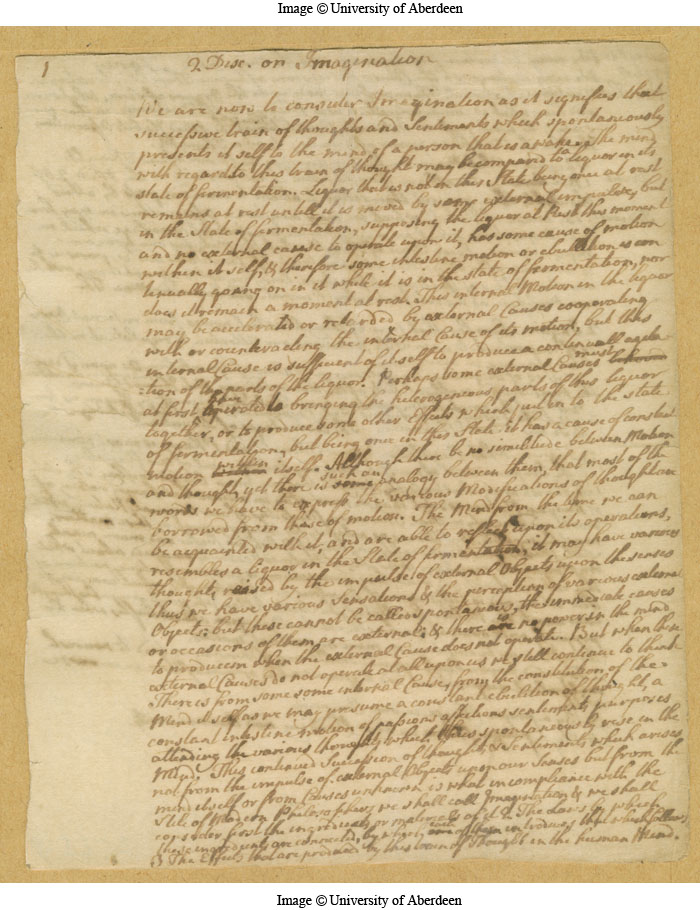 Image © University of Aberdeen
1
2 Disc. on Imagination
We are now to consider Imagination as it signifies that
successive train of thoughts and Sentiments which spontaneously
presents it self to the mind of a person that is awake. The mind
with regard to this train of thought may be compared to liquor in its
state of fermentation. Liquor that is not in this State being once at rest
remains at rest untill it is moved by some external impulse, but
in the State of fermentation, supposing the liquor at Rest this moment
and no external cause to operate upon it, has some cause of motion
within it self, & therefore some intestine motion or ebullition is con
tinually going on in it while it is in the state of fermentation, nor
does it remain a moment at rest. This internal Motion in the liquor
may be accelerated or retarded by external Causes cooperating
with or counteracting the internal Cause of its motion, but this
internal Cause is sufficient of it self to produce a continuall agita
tion of the parts of the liquor. Perhaps some external Causes must
at first have operated bringing the heterogeneous parts of this liquor
together, or to produce some other Effects which put in to the state
of fermentation, but being once in this State it has a cause of constant
motion within itself. Although there be no similitude between Motion
and thought, yet there is such an analogy between them, that most of the
words we have to express the various Modifications of thought are
borrowed from those of motion. The Mind from the time we can
be acquainted with it, and are able to reflect upon its operations,
resembles a liquor in the State of fermentation, it may have various
thoughts raised by the impulse of external Objects upon the senses
thus we have various Sensations & the perception of various external
Objects: but these cannot be called spontaneous, the immediate causes
or occasions of them are external; & there is no power in the mind
to produce them when the external Cause does not operate. But when the
external Causes do not operate at all upon us we still continue to think
There is from some some internal Cause, from the constitution of the
Mind itself as we may presume a constant ebullition of thought, a
constant intestine motion of passions affections sentiments purposes
attending the various thoughts which thus spontaneously rise in the
Mind. This continued Succession of thoughts & sentiments which arises
not from the impulse of external Objects upon our Senses but from the
mind itself or from Causes unknown is what in compliance with the
Stile of Modern Philosophers we shall call Imagination & we shall
consider first the ingredients or materials of it 2 The Laws by which
these ingredients are connected, by which one introduces that which follows
3 The Effects that are produced by this train of Thought in the human Mind.
Image © University of Aberdeen